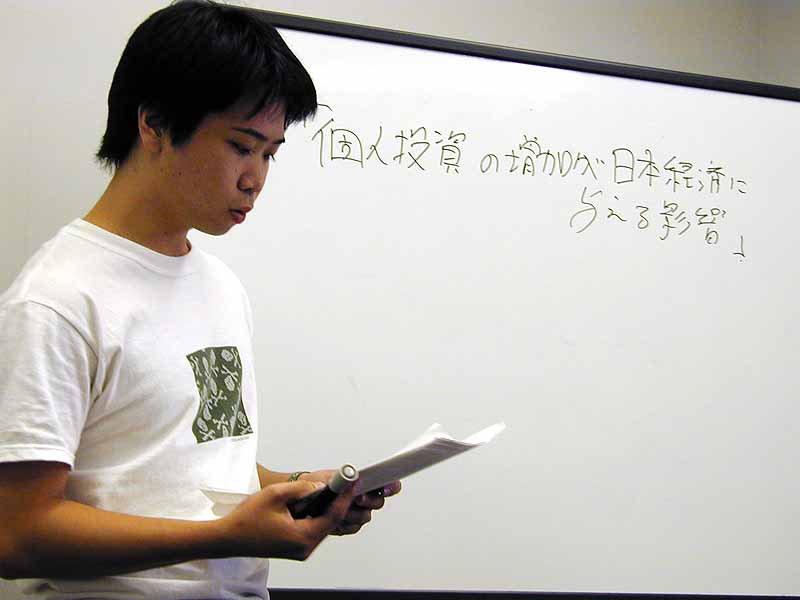 「個人投資の増加が日本経済に
与える影響」